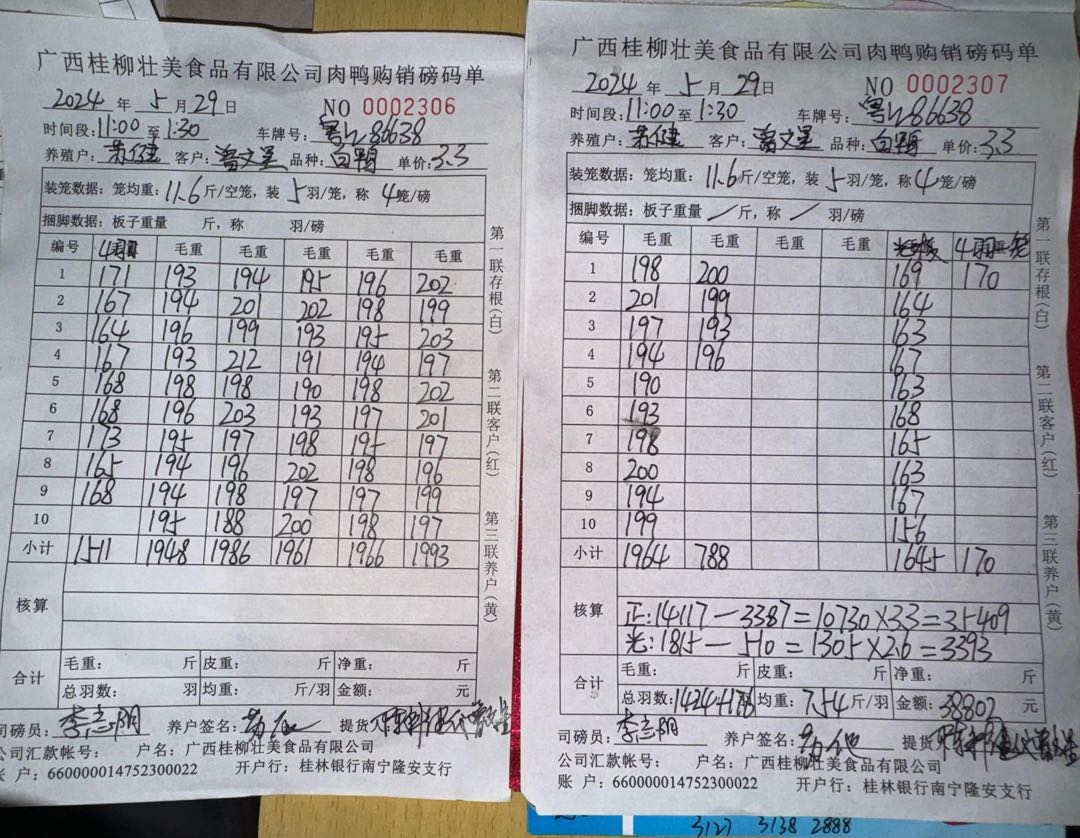 广西桂柳壮美食品有限公司肉鸭购销磅码单
2024 年 5 月 29 日 NO 0002306
时间段:11:00 至 1:30 车牌号: 粤L86638
养殖户: 苏健 客户: 曾文星 品种: 白鸭 单价: 3.3
装笼数据: 笼均重: 11.6 斤/空笼, 装 5 羽/笼, 称 4 笼/磅
捆脚数据: 板子重量 斤, 称 羽/磅
编号 毛重 毛重 毛重 毛重 毛重
1 171 193 194 195 196 202
2 167 194 201 202 198 199
3 164 196 199 193 195 203
4 167 193 212 191 194 197
5 168 198 198 190 198 202
6 168 196 203 193 197 201
7 173 195 197 198 195 197
8 165 194 196 202 198 196
9 168 194 198 197 197 199
10 195 188 200 198 197
小计 1511 1948 1986 1961 1966 1993
核算
合计
毛重: 斤 皮重: 斤 净重: 斤
总羽数: 羽 均重: 斤/羽 金额: 元
司磅员: 李志阴 养户签名: 提货
公司汇款帐号: 户名: 广西桂柳壮美食品有限公司
账 户: 660000014752300022 开户行: 桂林银行南宁隆安支行
第一联存根(白) 第二联客户(红) 第三联养户(黄)
广西桂柳壮美食品有限公司肉鸭购销磅码单
2024 年 5 月 29 日 NO 0002307
时间段:11:00 至 1:30 车牌号: 粤L86638
养殖户: 苏健 客户: 曾文星 品种: 白鸭 单价: 3.3
装笼数据: 笼均重: 11.6 斤/空笼, 装 5 羽/笼, 称 4 笼/磅
捆脚数据: 板子重量 / 斤, 称 / 羽/磅
编号 毛重 毛重 毛重 毛重
1 198 200 169 170
2 201 199 164
3 197 193 163
4 194 196 167
5 190 163
6 193 168
7 198 165
8 200 163
9 194 167
10 199 156
小计 1964 788 1645 170
核算
正:14117-3387=10730×3.3=35409
光:1815-510=1305×2.6=3393
合计
毛重: 斤 皮重: 斤 净重: 斤
总羽数: 羽 均重: 7.54 斤/羽 金额: 38802 元
司磅员: 李志阴 养户签名: 提货
公司汇款帐号: 户名: 广西桂柳壮美食品有限公司
账 户: 660000014752300022 开户行: 桂林银行南宁隆安支行
第一联存根(白) 第二联客户(红) 第三联养户(黄)
3127 3138 2888